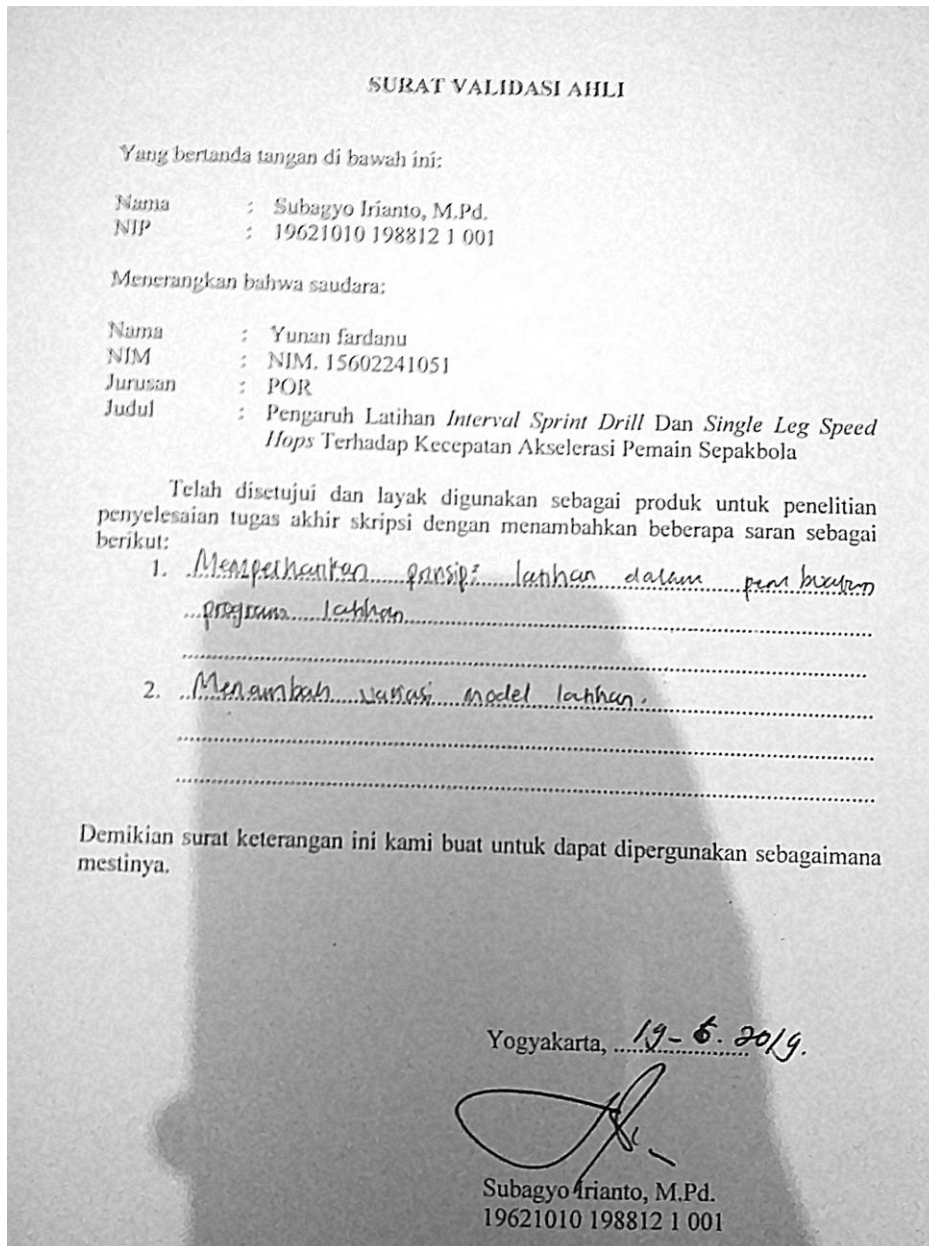 SURAT VALIDASI AHLI
Yang bertanda tangan di bawah ini:
Nama : Subagyo Irianto, M.Pd.
NIP : 19621010 198812 1 001
Menerangkan bahwa saudara:
Nama : Yunan fardanu
NIM : NIM. 15602241051
Jurusan : POR
Judul : Pengaruh Latihan Interval Sprint Drill Dan Single Leg Speed
Hops Terhadap Kecepatan Akselerasi Pemain Sepakbola
Telah disetujui dan layak digunakan sebagai produk untuk penelitian
penyelesaian tugas akhir skripsi dengan menambahkan beberapa saran sebagai
berikut:
1. Memperhatikan prinsip2 latihan dalam pembuatan
program latihan
2. Menambah variasi model latihan.
Demikian surat keterangan ini kami buat untuk dapat dipergunakan sebagaimana
mestinya.
Yogyakarta, 19- . 2019.
Subagyo Irianto, M.Pd.
19621010 198812 1 001